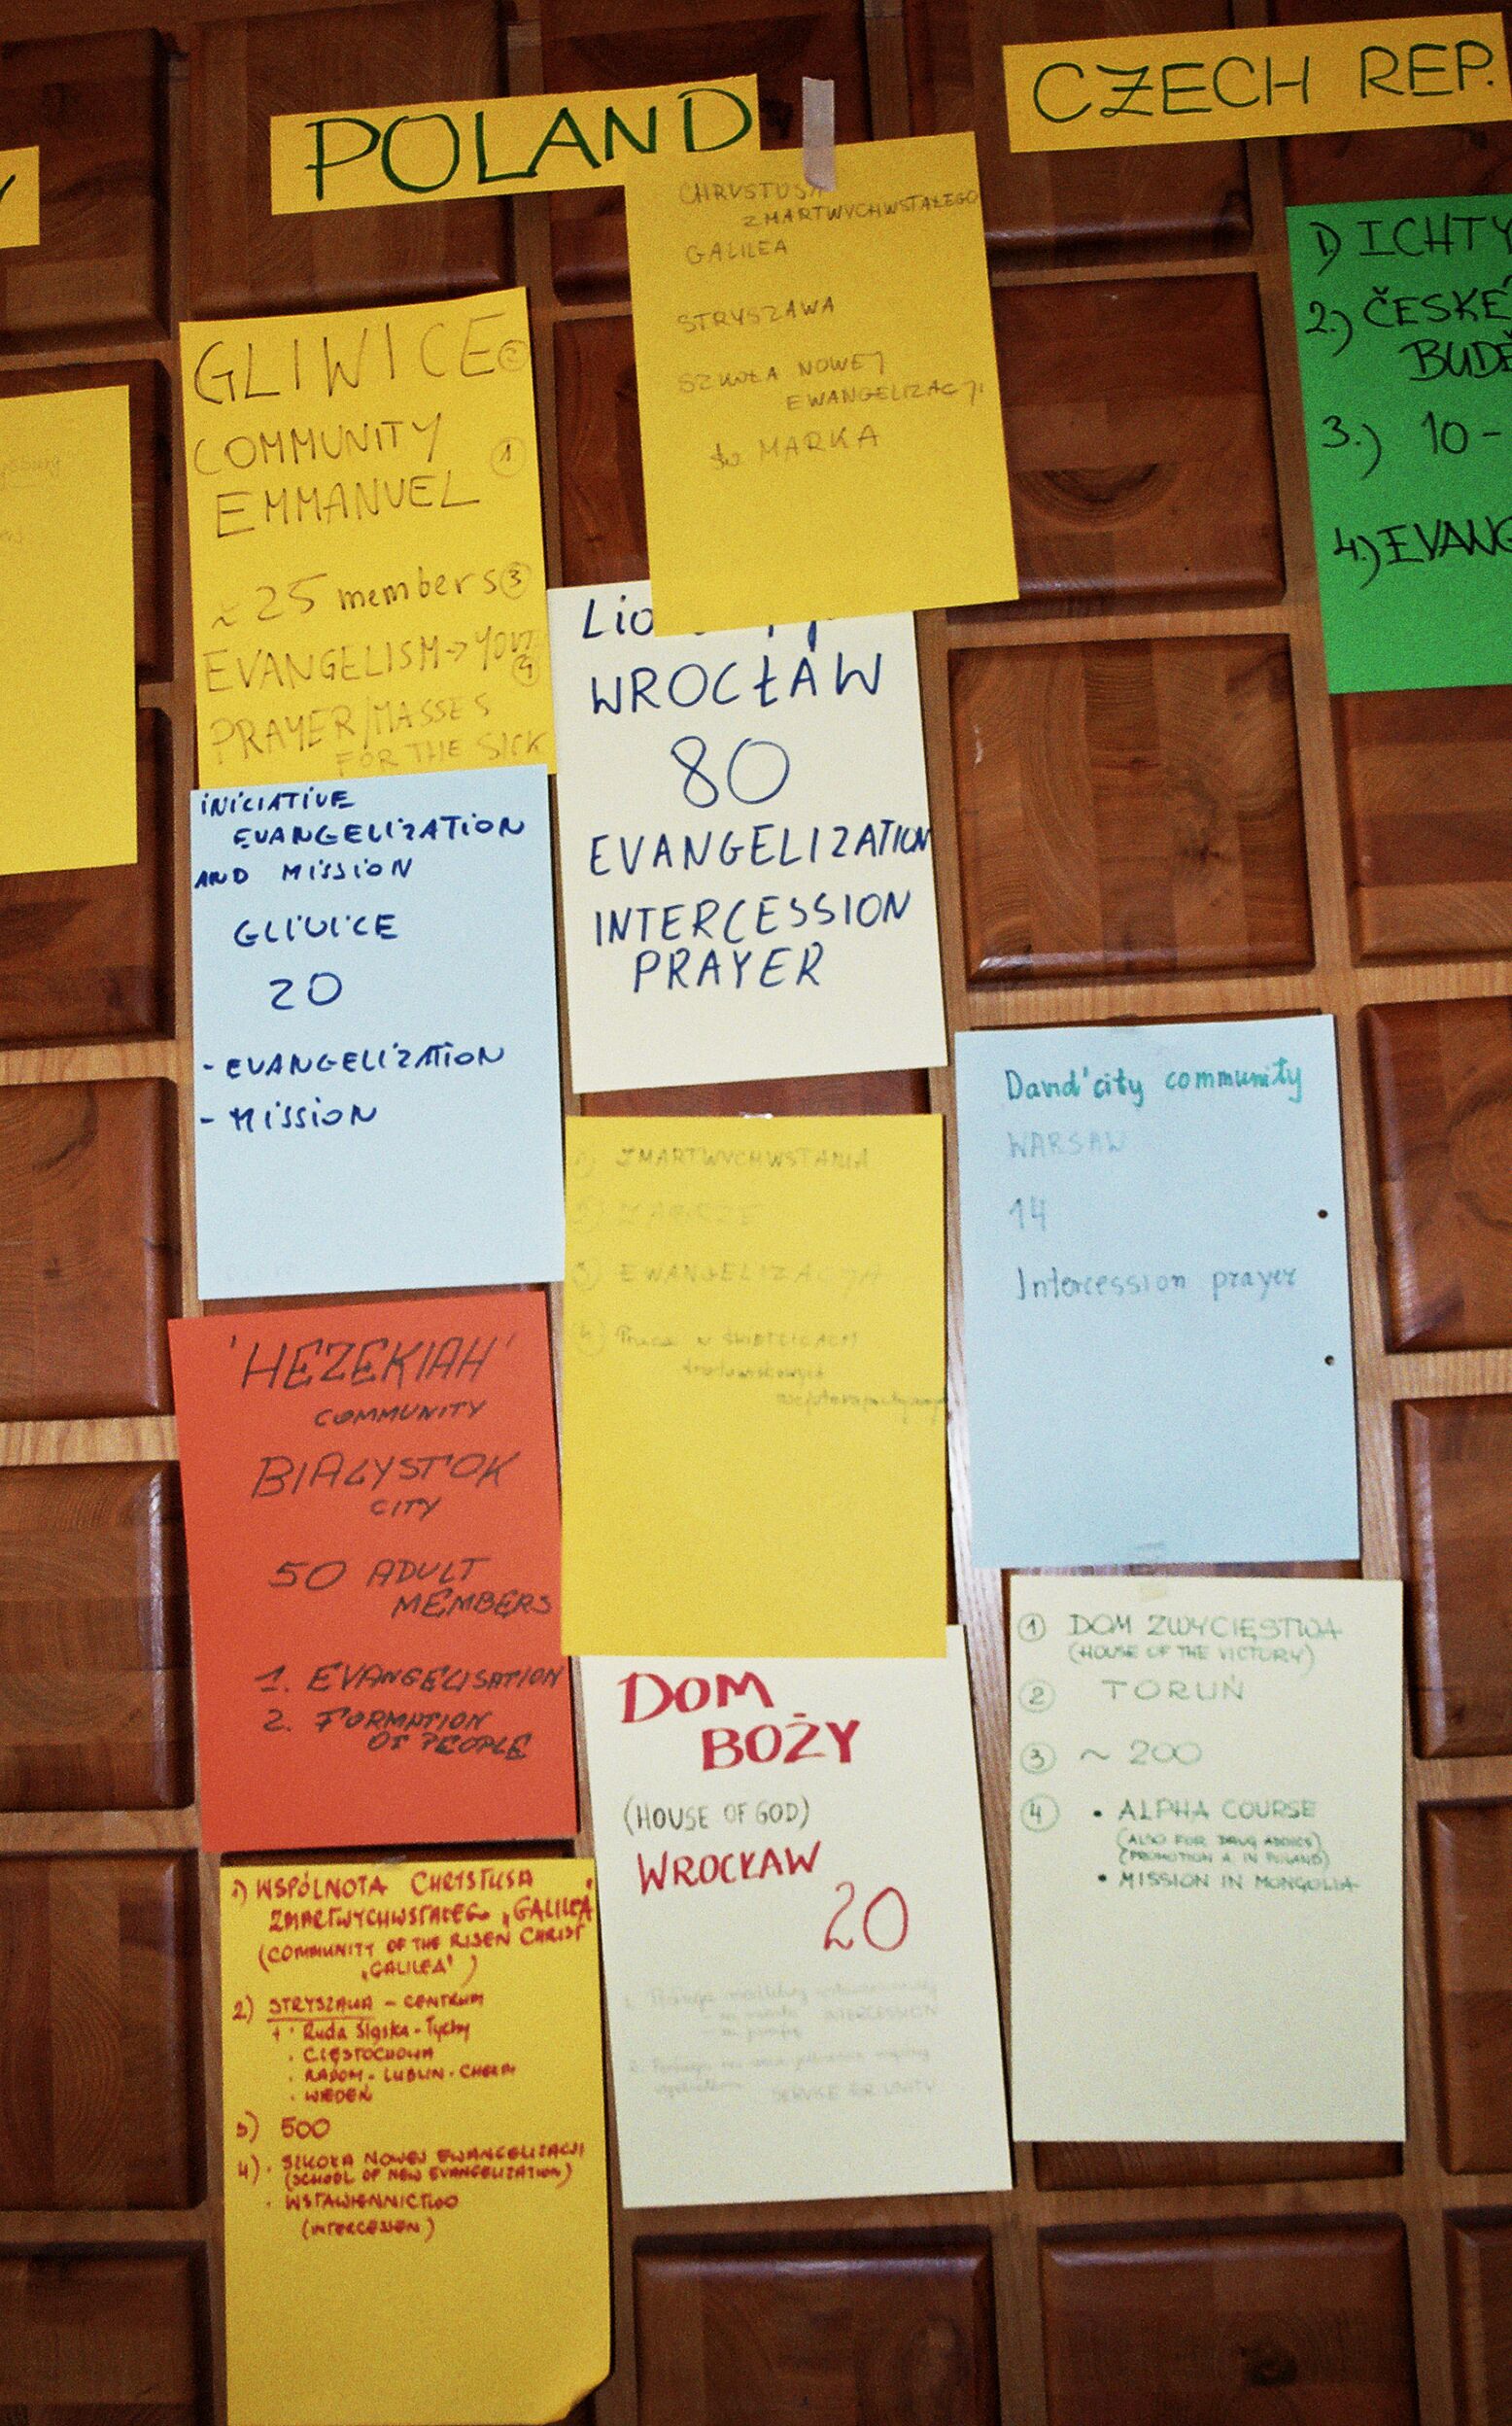 POLAND
CZECH REP.
CHRYSTUSA
ZMARTWYCHWSTAŁEGO
GALILEA
STRYSZAWA
SZKOŁA NOWEJ
EWANGELIZACJI
św MARKA
GLIWICE 2
COMMUNITY 1
EMMANUEL
~ 25 members 3
EVANGELISM → 4
PRAYER/MASSES
FOR THE SICK
WROCŁAW
80
EVANGELIZATION
INTERCESSION
PRAYER
1) ICHTY
2.) ČESKÉ
BUDĚ
3.) 10 -
4.) EVANG
INICIATIVE
EVANGELIZATION
AND MISSION
GLIVICE
20
- EVANGELIZATION
- MISSION
1) ZMARTWYCHWSTANIA
2) ZABRZE
3) EWANGELIZACJA
4) Praca w świetlicach
środowiskowych
David'city community
WARSAW
14
Intercession prayer
'HEZEKIAH'
COMMUNITY
BIALYSTOK
CITY
50 ADULT
MEMBERS
1. EVANGELISATION
2. FORMATION
OF PEOPLE
DOM
BOŻY
(HOUSE OF GOD)
WROCŁAW
20
INTERCESSION
SERVICE FOR UNITY
1 DOM ZWYCIĘSTWA
(HOUSE OF THE VICTORY)
2 TORUŃ
3 ~ 200
4 • ALPHA COURSE
(ALSO FOR DRUG ADDICS)
(PROMOTION A. IN POLAND)
• MISSION IN MONGOLIA
1) WSPÓLNOTA CHRYSTUSA
ZMARTWYCHWSTAŁEGO „GALILEA"
(COMMUNITY OF THE RISEN CHRIST
„GALILEA")
2) STRYSZAWA - CENTRUM
+ · Ruda Śląska - Tychy
· CZĘSTOCHOWA
· RADOM - LUBLIN - CHEŁM
· WIEDEŃ
3) 500
4) · SZKOŁA NOWEJ EWANGELIZACJI
(SCHOOL OF NEW EVANGELIZATION)
· WSTAWIENNICTWO
(INTERCESSION)